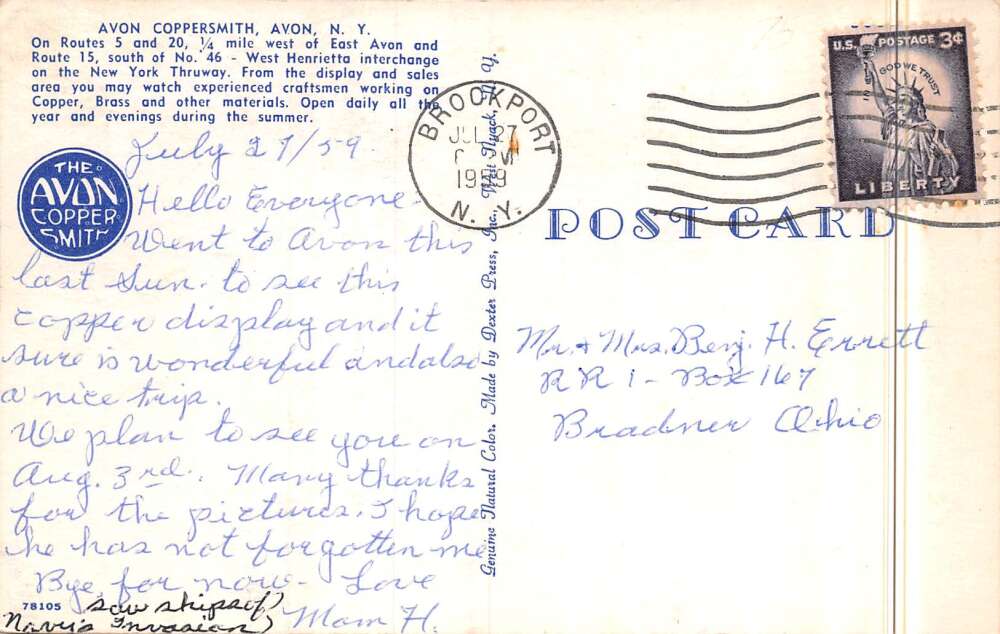 AVON COPPERSMITH, AVON, N. Y.
On Routes 5 and 20, ¼ mile west of East Avon and
Route 15, south of No. 46 - West Henrietta interchange
on the New York Thruway. From the display and sales
area you may watch experienced craftsmen working on
Copper, Brass and other materials. Open daily all the
year and evenings during the summer.
THE
AVON
COPPER
SMITH
July 27/59.
Hello Everyone -
Went to Avon this
last Sun. to see this
copper display and it
sure is wonderful and also
a nice trip.
We plan to see you on
Aug. 3rd. Many thanks
for the pictures. I hope
he has not forgotten me
Bye for now - Love
Mom H.
saw ships of)
Navy's Invasion)
78105
Genuine Natural Color. Made by Dexter Press, Inc., West Nyack, N. Y.
BROCKPORT
JUL 27
PM
1959
N. Y.
U.S. POSTAGE 3¢
IN GOD WE TRUST
LIBERTY
POST CARD
Mr. + Mrs. Benj. H. Errett
R R 1 - Box 167
Bradner Ohio